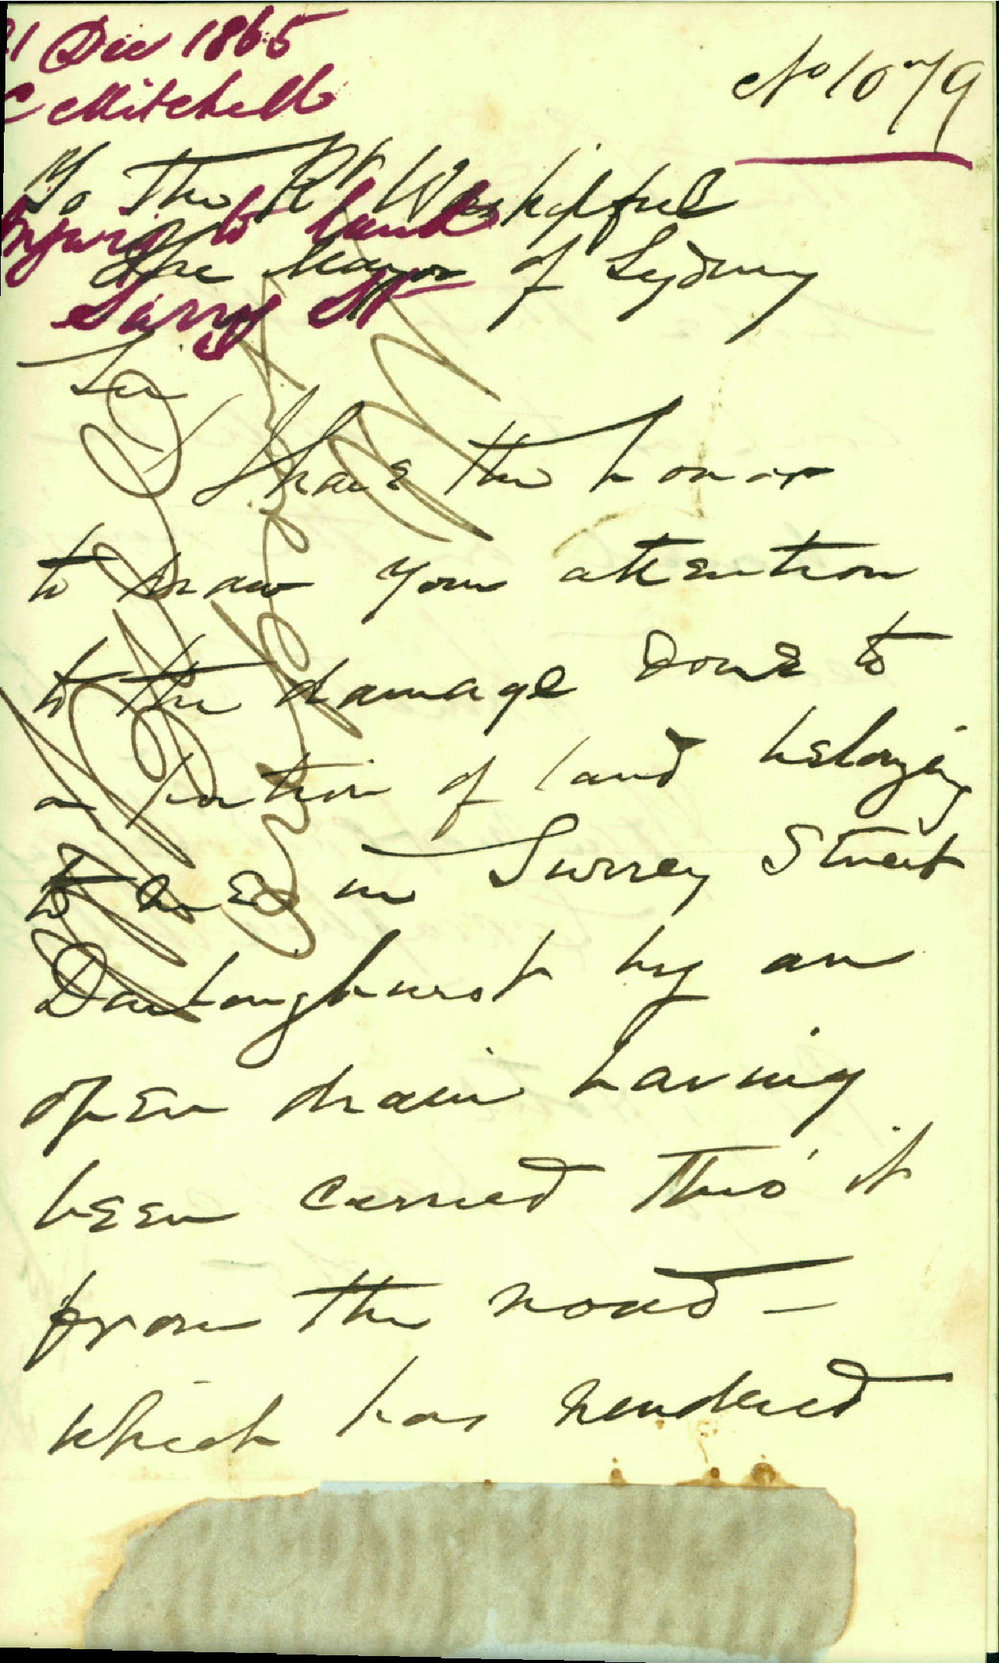 21 Dec 1865
C Mitchell
No 1079
To The Rt Worshipful
Injury to land
The Mayor of Sydney
Surry St
Sir
I have the honor
to draw your attention
to the damage done to
a portion of land belonging
to me in Surrey Street
Darlinghurst by an
open drain having
been carried thro' it
from the road –
which has rendered